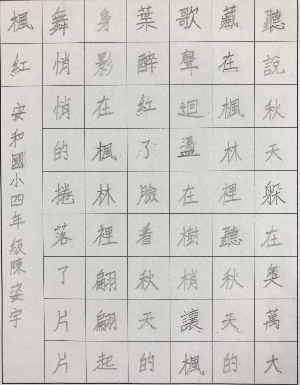 聽說秋天躲在奧萬大
藏在楓林裡聽秋天的
歌聲迴盪在樹梢讓楓
葉醉紅了臉看秋天的
身影在楓林裡翩翩起
舞悄悄的捲落了片片
楓紅
安和國小四年級陳姿宇